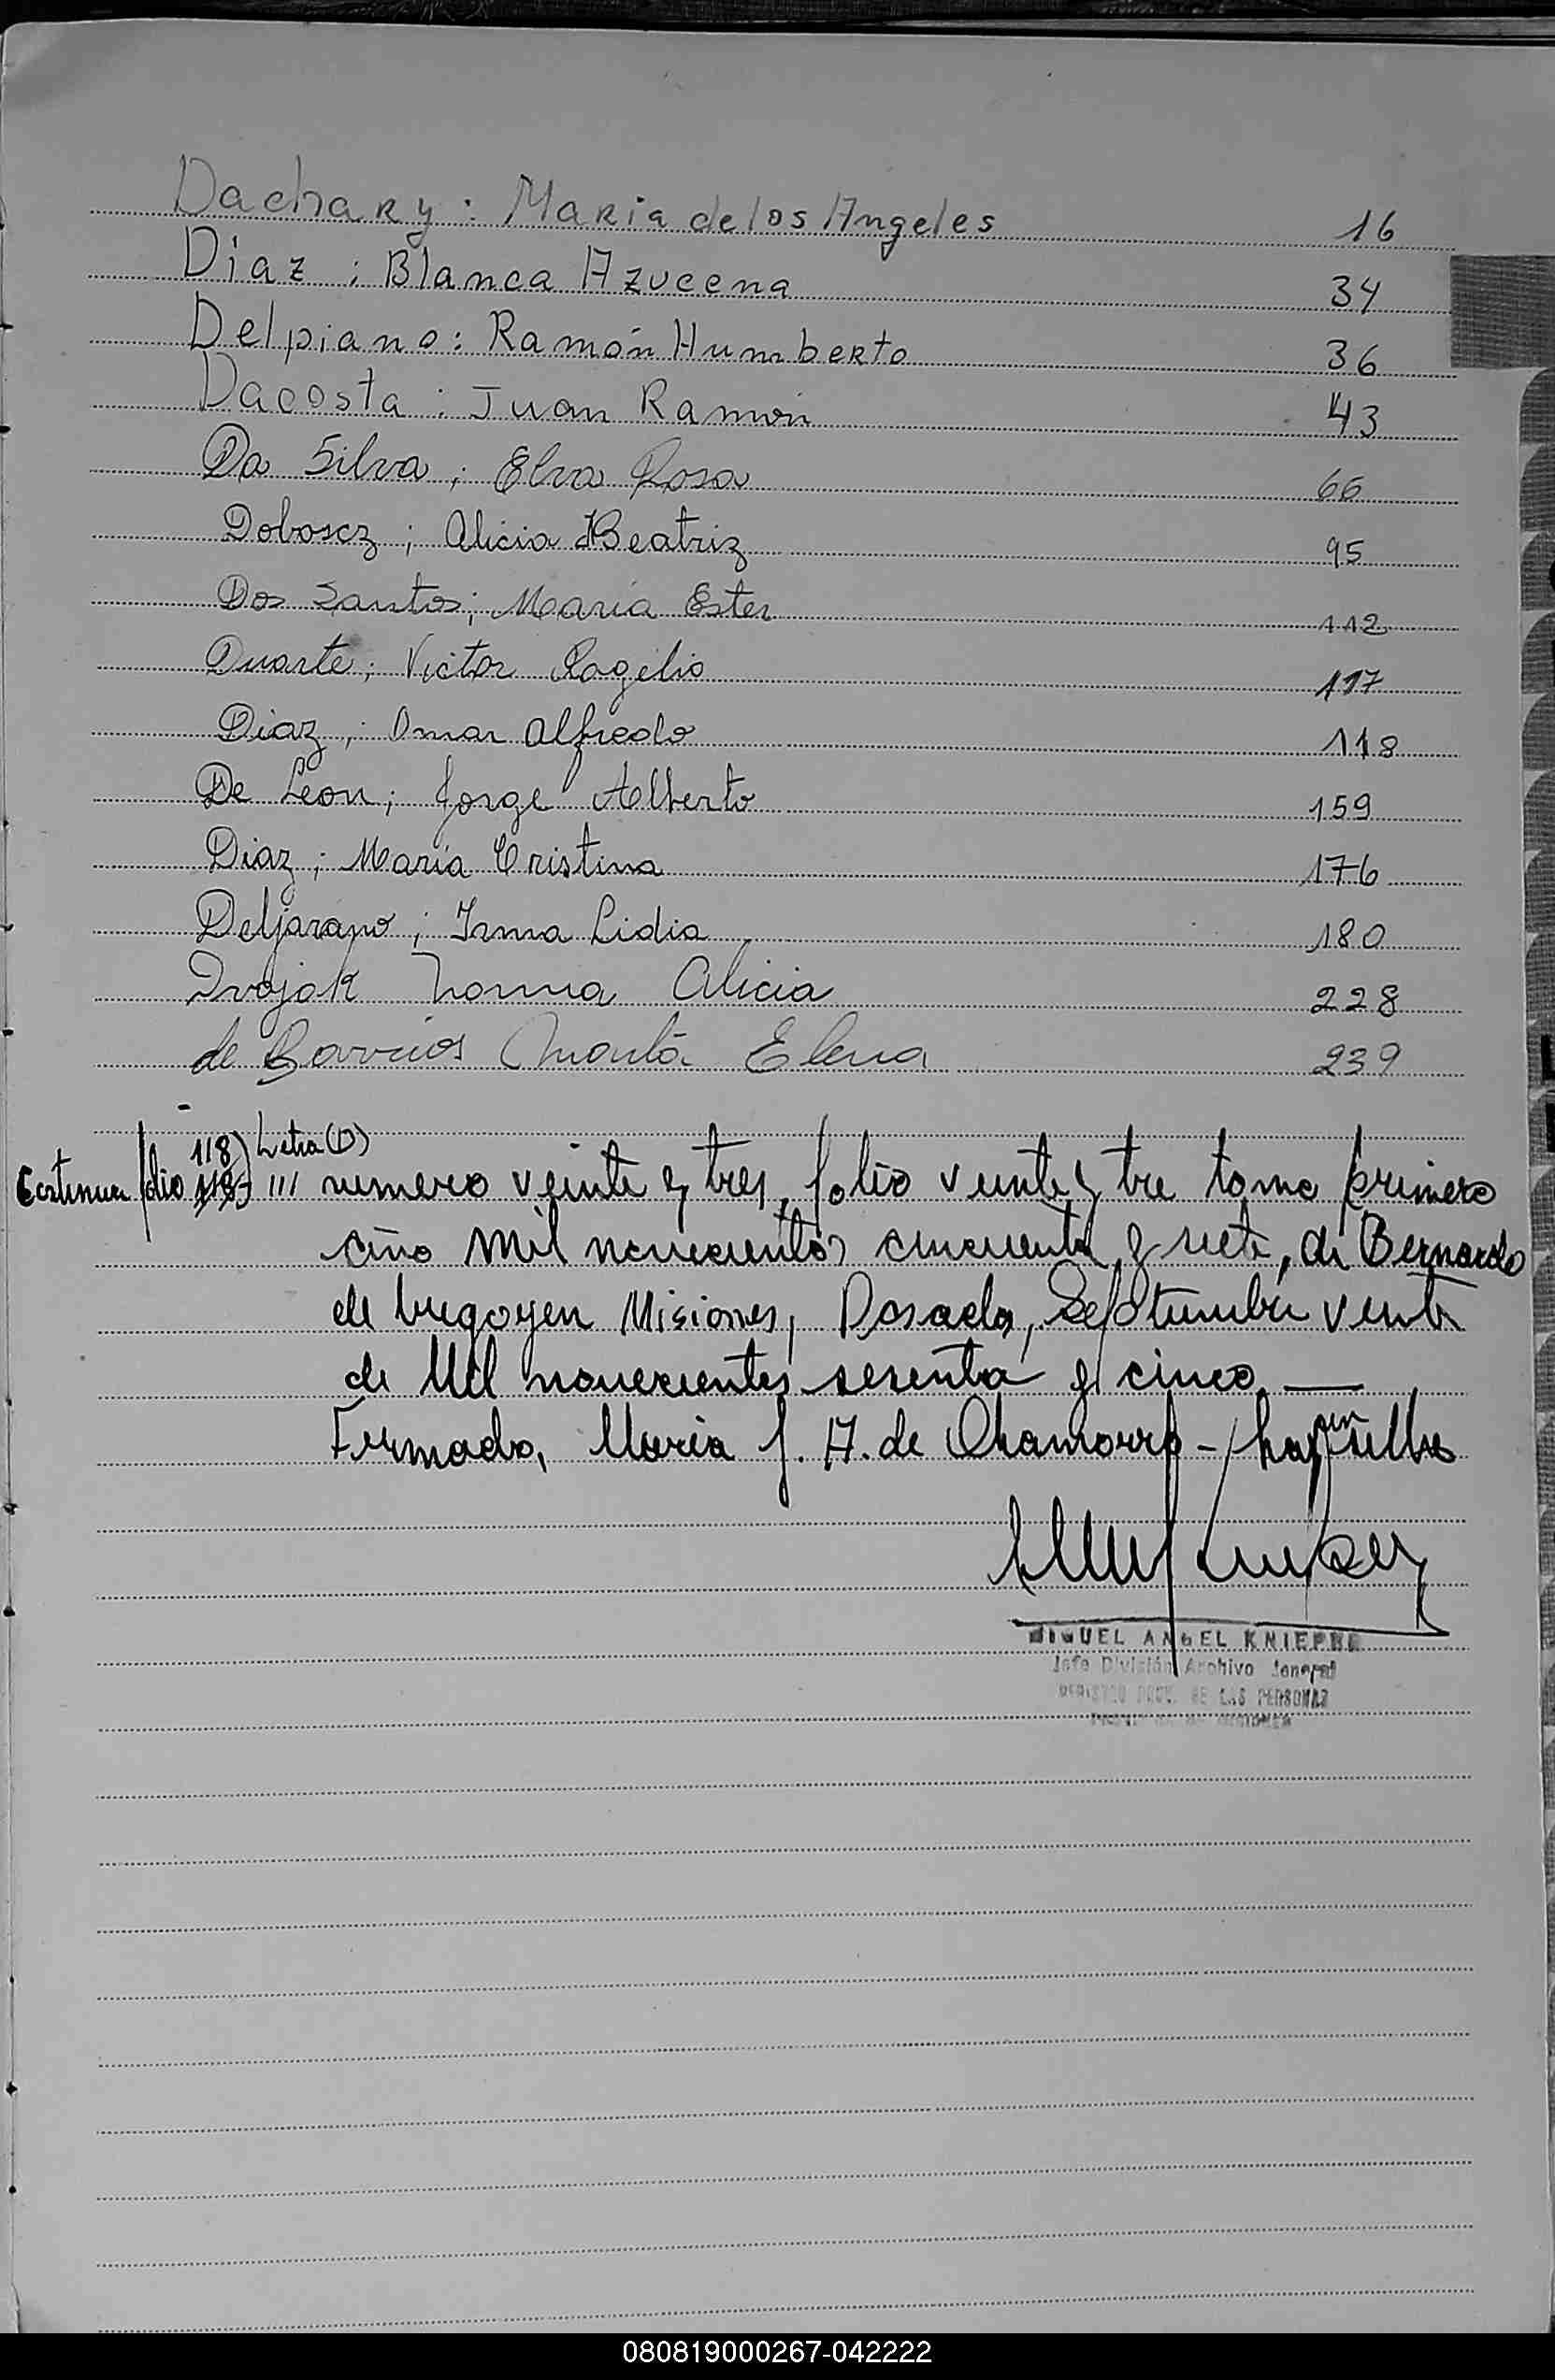 Dachary : Maria de los Angeles 16
Diaz : Blanca Azucena 34
Delpiano : Ramón Humberto 36
Dacosta : Juan Ramón 43
Da Silva ; Elva Rosa 66
Doboscz ; Alicia Beatriz 95
Dos Santos ; María Ester 112
Duarte ; Victor Rogelio 117
Diaz ; Omar Alfredo 118
De Leon ; Jorge Alberto 159
Diaz ; María Cristina 176
Deljarapo ; Irma Lidia 180
Dvojak Norma Alicia 228
de Barrios Elena 239
118) Letra (D)
Continua folio 118 /// numero veinte y tres, folio veinte y tre tomo primero
año mil novecientos cincuenta y siete, de Bernardo
de Irigoyen Misiones, Posadas, Septiembre veinte
de Mil novecientos sesenta y cinco. —
Firmado, María J. A. de Chamorro -
MIGUEL ANGEL KNIEPPE
Jefe División Archivo General
REGISTRO PROV. DE LAS PERSONAS
080819000267-042222